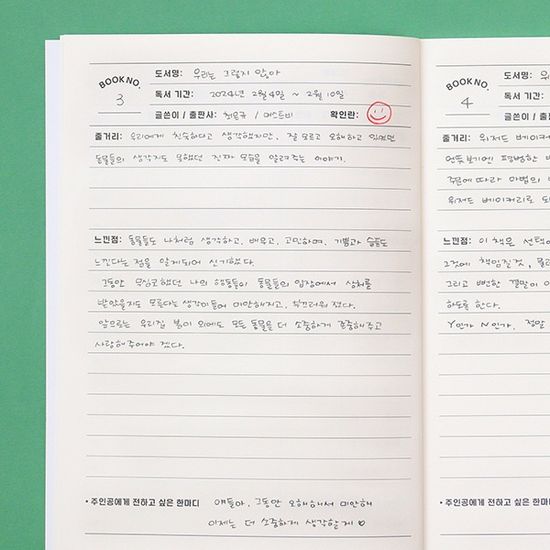 BOOK NO. 3
도서명: 우리는 그렇지 않아
독서 기간: 2024년 2월 4일 ~ 2월 10일
글쓴이 / 출판사: / 머스트비 확인란:
줄거리: 우리에게 친숙하다고 생각했지만, 잘 모르고 오해하고 있었던
동물들의 생각지도 못했던 진짜 모습을 알려주는 이야기.
느낀점: 동물들도 나처럼 생각하고, 배우고, 고민하며, 기쁨과 슬픔도
느낀다는 점을 알게되어 신기했다.
그동안 무심코했던 나의 행동들이 동물들의 입장에서 상처를
받았을지도 모른다는 생각이들어 미안해지고, 부끄러워졌다.
앞으로는 우리집 봄이 외에도 모든 동물을 더 소중하게 존중해주고
사랑해주어야 겠다.
• 주인공에게 전하고 싶은 한마디 얘들아, 그동안 오해해서 미안해
이제는 더 소중하게 생각할게 ♡
BOOK NO. 4
도서명:
독서 기간: 20
글쓴이 / 출판사:
줄거리: 위저드 베이커
언뜻보기엔 평범한
주문에 따라 마법의
위저드 베이커리로
느낀점: 이 책은 선택에
그것에 책임질것,
그리고 뻔한 결말이
하도록 한다.
Y인가 N인가, 정말
• 주인공에게 전하고 싶은 한마디